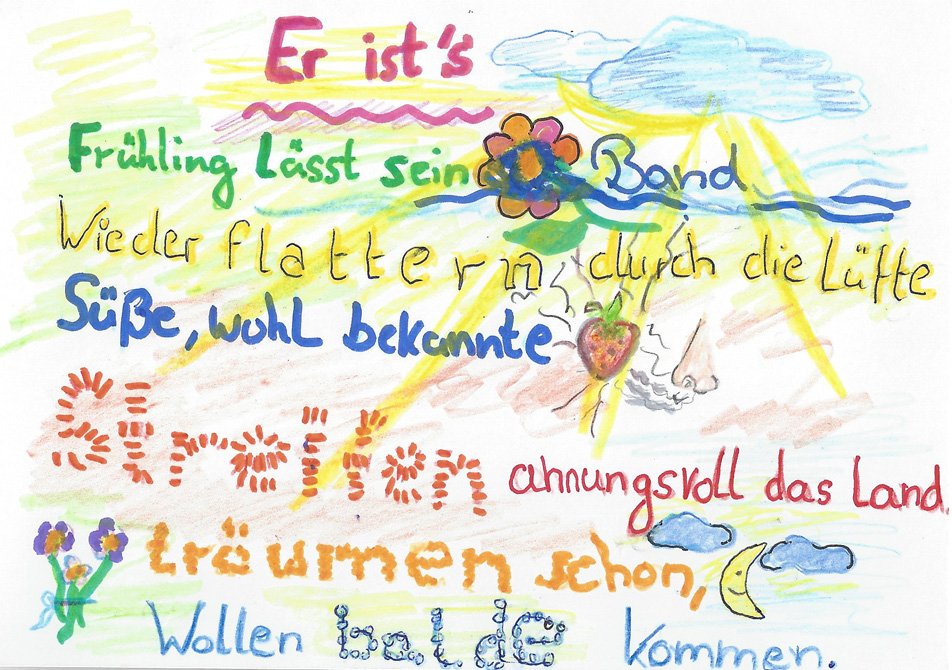 Er ist's
Frühling Lässt sein Band
Wieder flattern durch die Lüfte
Süße, wohl bekannte
Streifen ahnungsvoll das Land.
träumen schon,
Wollen balde kommen.